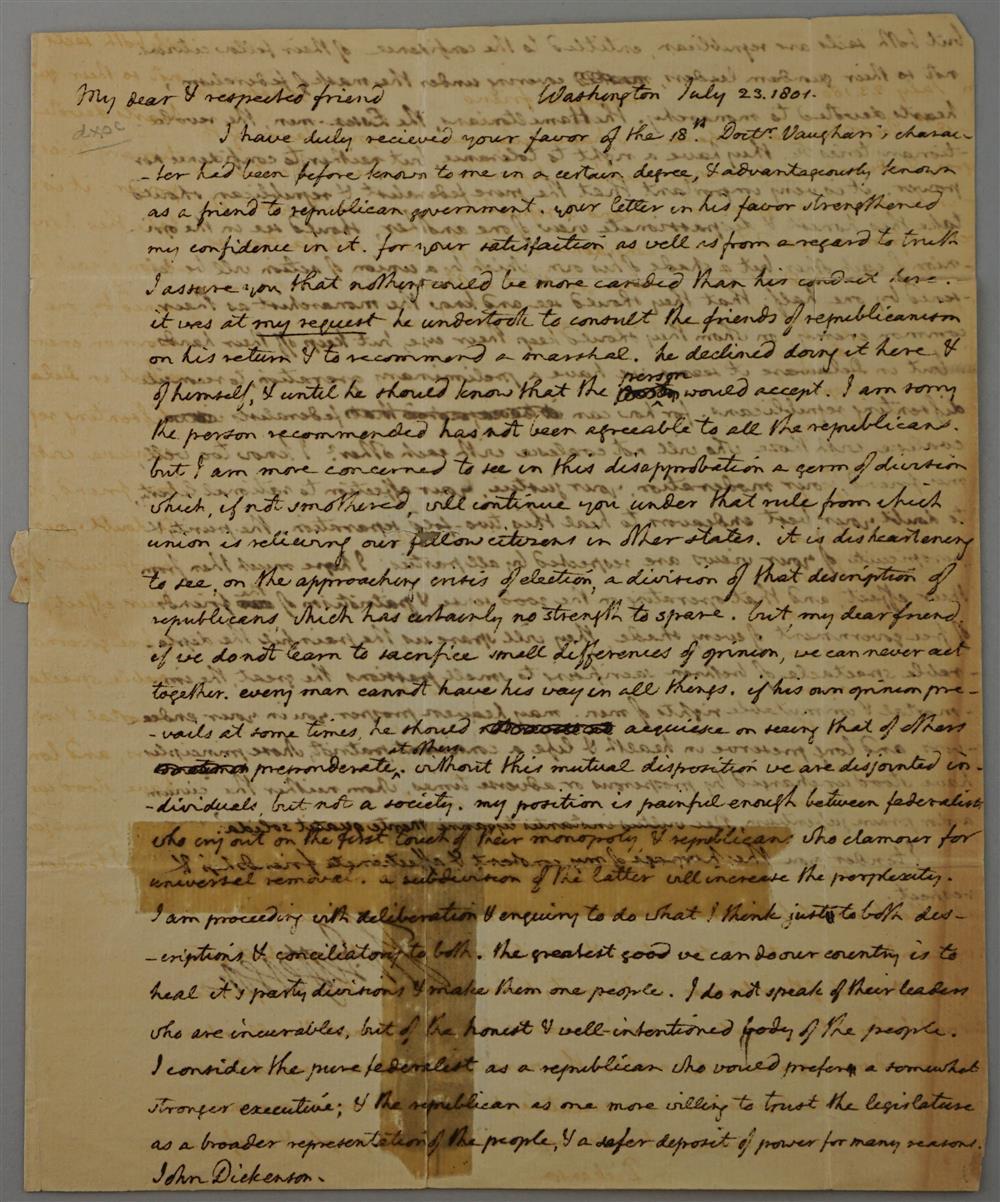 My dear & respected friend Washington July 23. 1801.
I have duly recieved your favor of the 18th. Doctr. Vaughan's charac-
-ter had been before known to me in a certain degree, & advantageously known
as a friend to republican government. your letter in his favor strengthened
my confidence in it. for your satisfaction as well as from a regard to truth
I assure you that nothing could be more candid than his conduct here.
it was at my request he undertook to consult the friends of republicanism
on his return & to recommend a marshal. he declined doing it here &
of himself, & until he should know that the person would accept. I am sorry
the person recommended has not been agreeable to all the republicans.
but I am more concerned to see in this disapprobation a germ of division
which, if not smothered, will continue you under that rule from which
union is relieving our fellow citizens in other states. it is disheartening
to see, on the approaching crisis of election, a division of that description of
republicans which has certainly no strength to spare. but, my dear friend,
if we do not learn to sacrifice small differences of opinion, we can never act
together. every man cannot have his way in all things. if his own opinion pre-
-vails at some times, he should acquiesce on seeing that of others
preponderate at others. without this mutual disposition we are disjointed in-
-dividuals, but not a society. my position is painful enough between federalists
who cry out on the first touch of their monopoly, & republicans who clamour for
universal removal. a subdivision of the latter will increase the perplexity.
I am proceeding with deliberation & enquiry to do what I think just to both des-
-criptions & conciliatory to both. the greatest good we can do our country is to
heal it's party divisions & make them one people. I do not speak of their leaders
who are incurables, but of the honest & well-intentioned body of the people.
I consider the pure federalist as a republican who would prefer a somewhat
stronger executive; & the republican as one more willing to trust the legislature
as a broader representation of the people, & a safer deposit of power for many reasons.
John Dickenson.